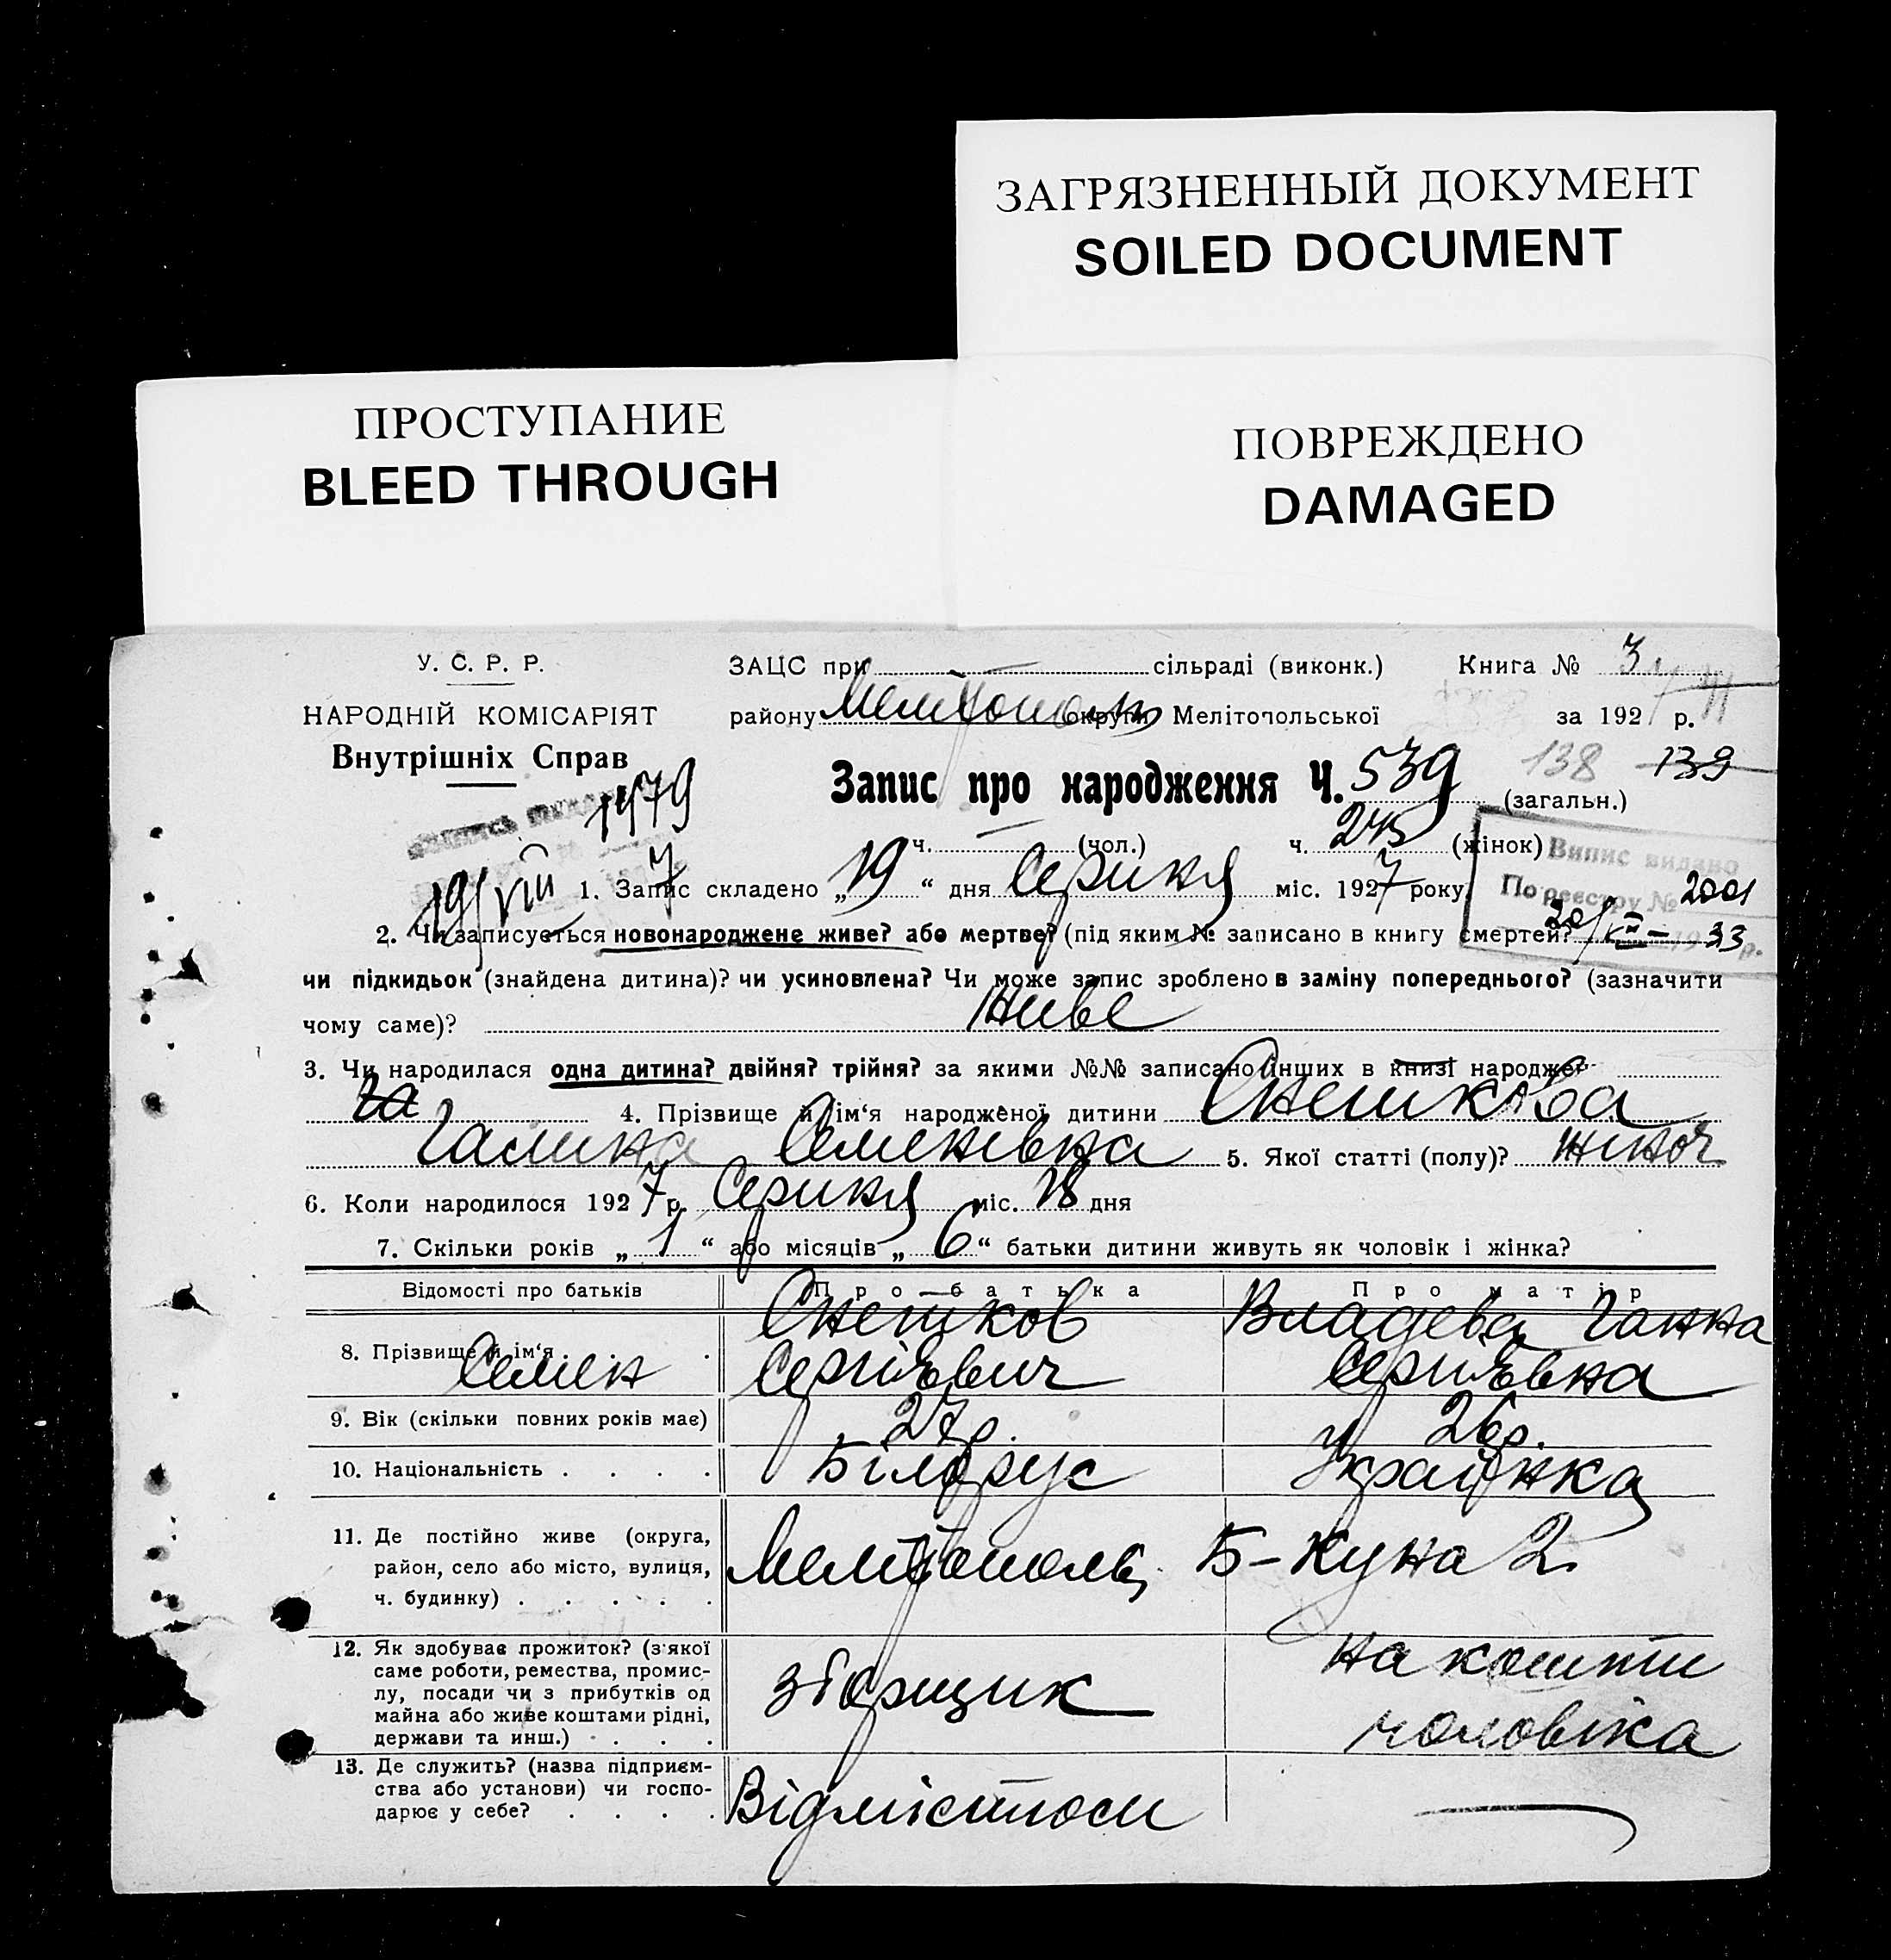 ЗАГРЯЗНЕННЫЙ ДОКУМЕНТ
SOILED DOCUMENT
ПРОСТУПАНИЕ
BLEED THROUGH
ПОВРЕЖДЕНО
DAMAGED
У. С. Р. Р.
НАРОДНІЙ КОМІСАРІЯТ
Внутрішніх Справ
ЗАЦС при сільраді (виконк.) Книга № 3
району Мелітополь округи Мелітопольської за 1927 р.
Запис про народження Ч. 539 138 139
(загальн.)
1579
ч. — (чол.) ч. 245 (жінок)
Випис видано
По реестру № 2001
20/XII - 33 р.
19/VIII 7
1. Запис складено „19“ дня Серпня міс. 1927 року.
2. Чи записується новонароджене живе? або мертве? (під яким № записано в книгу смертей?
чи підкидьок (знайдена дитина)? чи усиновлена? Чи може запис зроблено в заміну попереднього? (зазначити
чому саме)? живе
3. Чи народилася одна дитина? двійня? трійня? за якими №№ записано інших в книзі народжен-
4. Прізвище й ім‘я народженої дитини Снешкова
Галина Семенівна 5. Якої статті (полу)? жіноч
6. Коли народилося 1927 р. Серпня міс. 18 дня
7. Скільки років „1“ або місяців „6“ батьки дитини живуть як чоловік і жінка?
Відомості про батьків Про батька Про матір
8. Прізвище й ім‘я Снешков Семен Сергієвич Владева Ганна Сергієвна
9. Вік (скільки повних років має) 27 р. 26 р.
10. Національність Білорус Українка
11. Де постійно живе (округа,
район, село або місто, вулиця,
ч. будинку) Мелітополь Б-Куна 2
12. Як здобуває прожиток? (з якої
саме роботи, ремества, промис-
лу, посади чи з прибутків од
майна або живе коштами рідні,
держави та инш.) зборщик на кошти чоловіка
13. Де служить? (назва підприєм-
ства або установи) чи госпо-
дарює у себе?